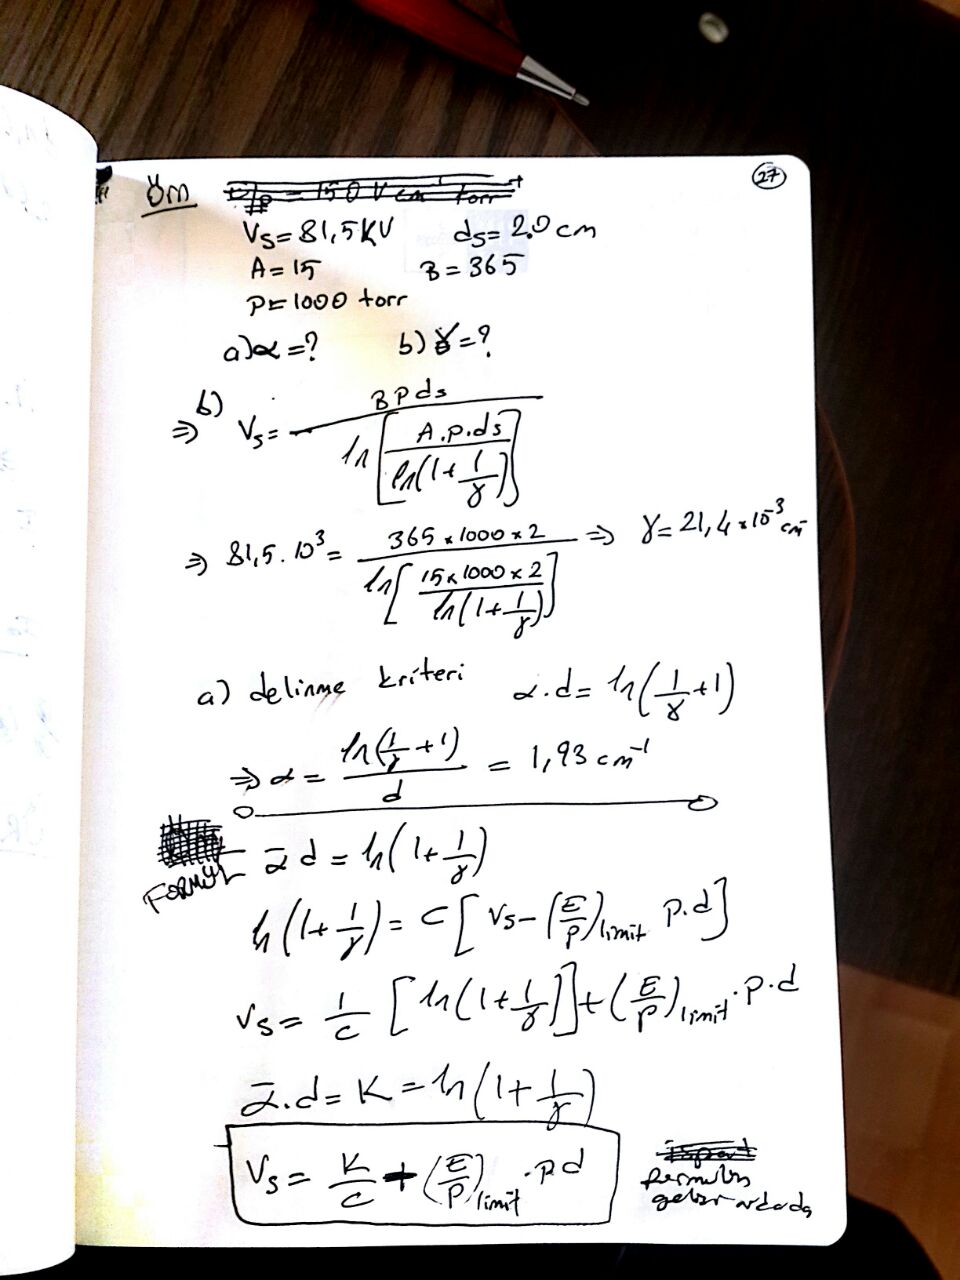 27
Örn E/p = 150 V cm⁻¹ torr⁻¹
Vs = 81,5 KV ds = 2.0 cm
A = 15 B = 365
P = 1000 torr
a) α = ? b) γ = ?
⇒ b) Vs = B P ds / ln[A.p.ds / ln(1 + 1/γ)]
⇒ 81,5 . 10³ = 365 x 1000 x 2 / ln[15 x 1000 x 2 / ln(1 + 1/γ)] ⇒ γ = 21,4 x 10⁻³ cm
a) delinme kriteri α.d = ln(1/γ + 1)
⇒ α = ln(1/γ + 1) / d = 1,93 cm⁻¹
FORMÜL
ᾱ d = ln(1 + 1/γ)
ln(1 + 1/γ) = C [Vs - (E/P)limit p.d]
Vs = 1/C [ln(1 + 1/γ)] + (E/P)limit . p.d
ᾱ.d = K = ln(1 + 1/γ)
Vs = K/C + (E/P)limit . pd
ispat